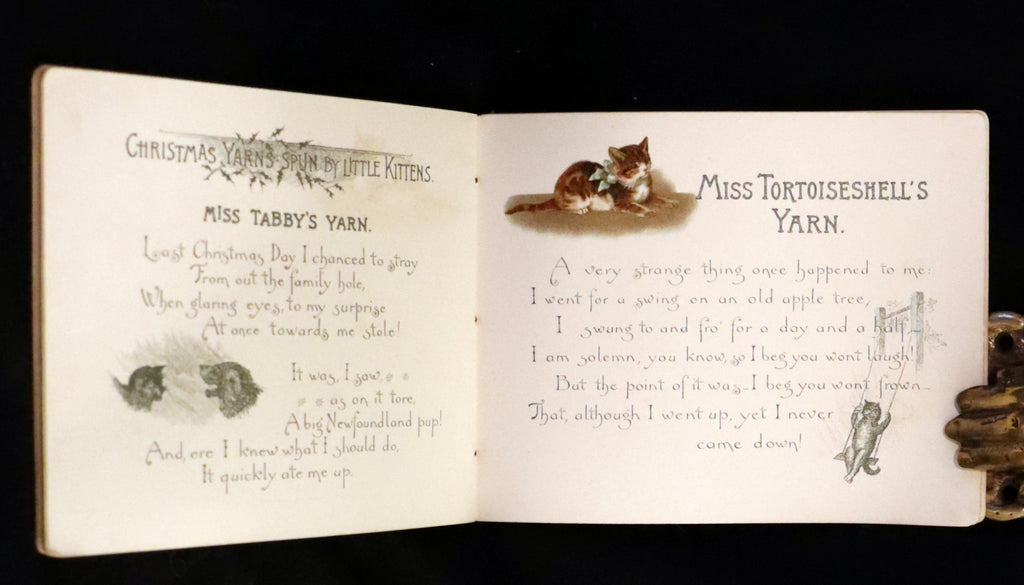 CHRISTMAS YARNS SPUN BY LITTLE KITTENS.
MISS TABBY'S YARN.
Last Christmas Day I chanced to stray
From out the family hole,
When glaring eyes, to my surprise
At once towards me stole!
It was, I saw,
as on it tore,
A big Newfoundland pup!
And, ere I knew what I should do,
It quickly ate me up.
MISS TORTOISESHELL'S
YARN.
A very strange thing once happened to me:
I went for a swing on an old apple tree,
I swung to and fro' for a day and a half—
I am solemn, you know, so I beg you wont laugh!
But the point of it was—I beg you wont frown—
That, although I went up, yet I never
came down!